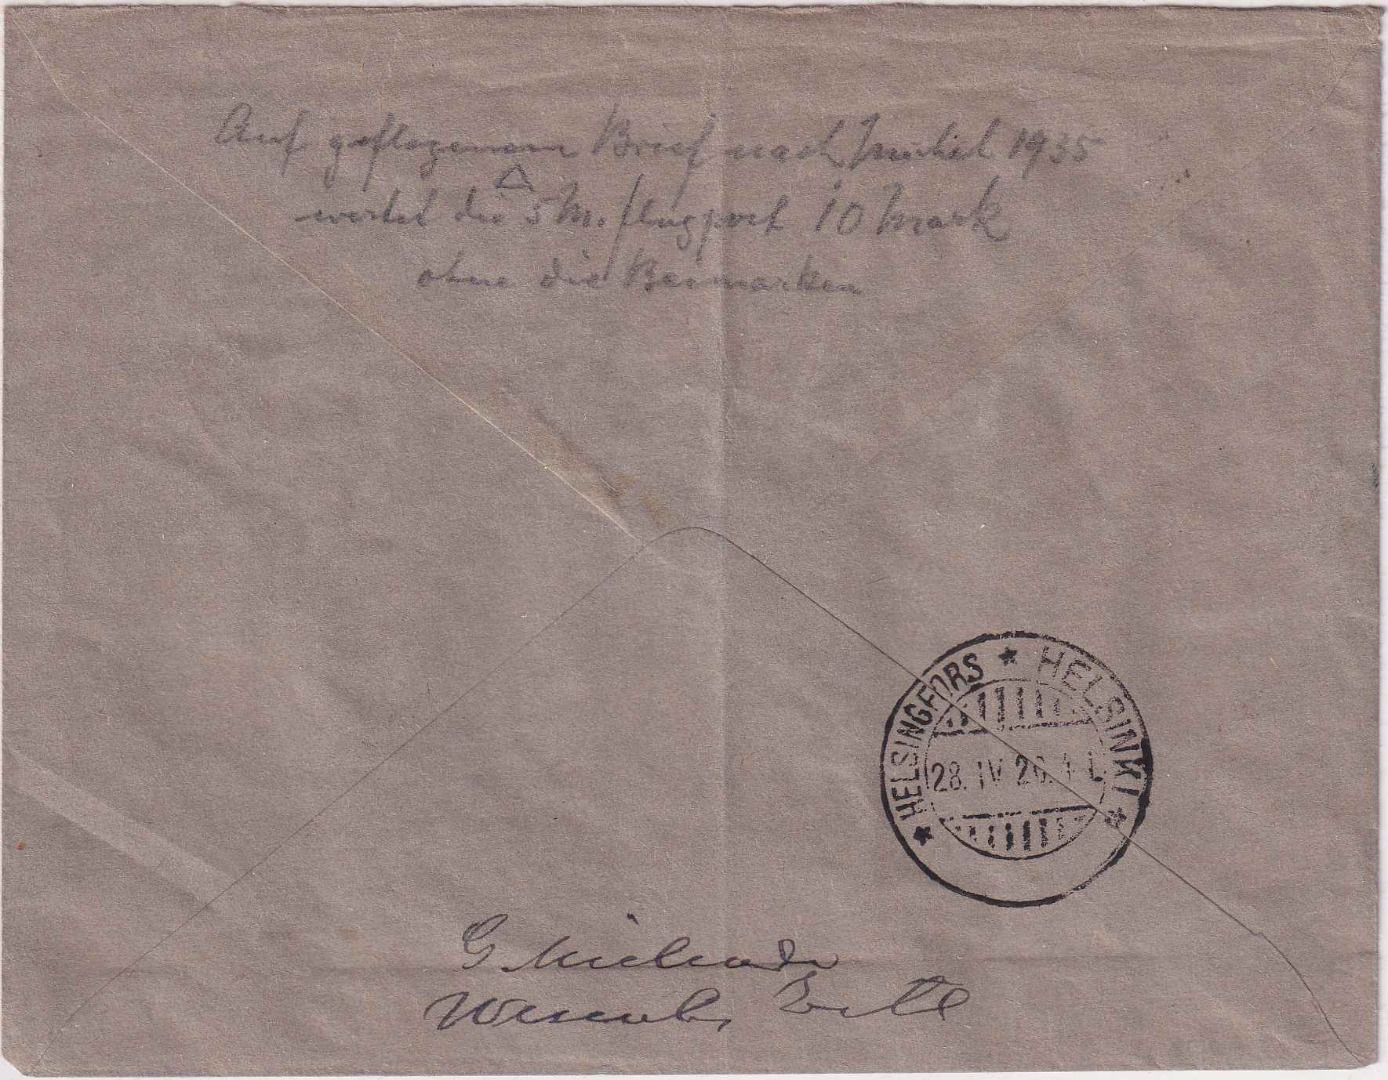 Auf geflogenem Brief nach Michel 1935
wertet die 5 M. flugpost 10 Mark
ohne die Beimarken
★ HELSINGFORS ★ HELSINKI ★
28. IV 26.
G